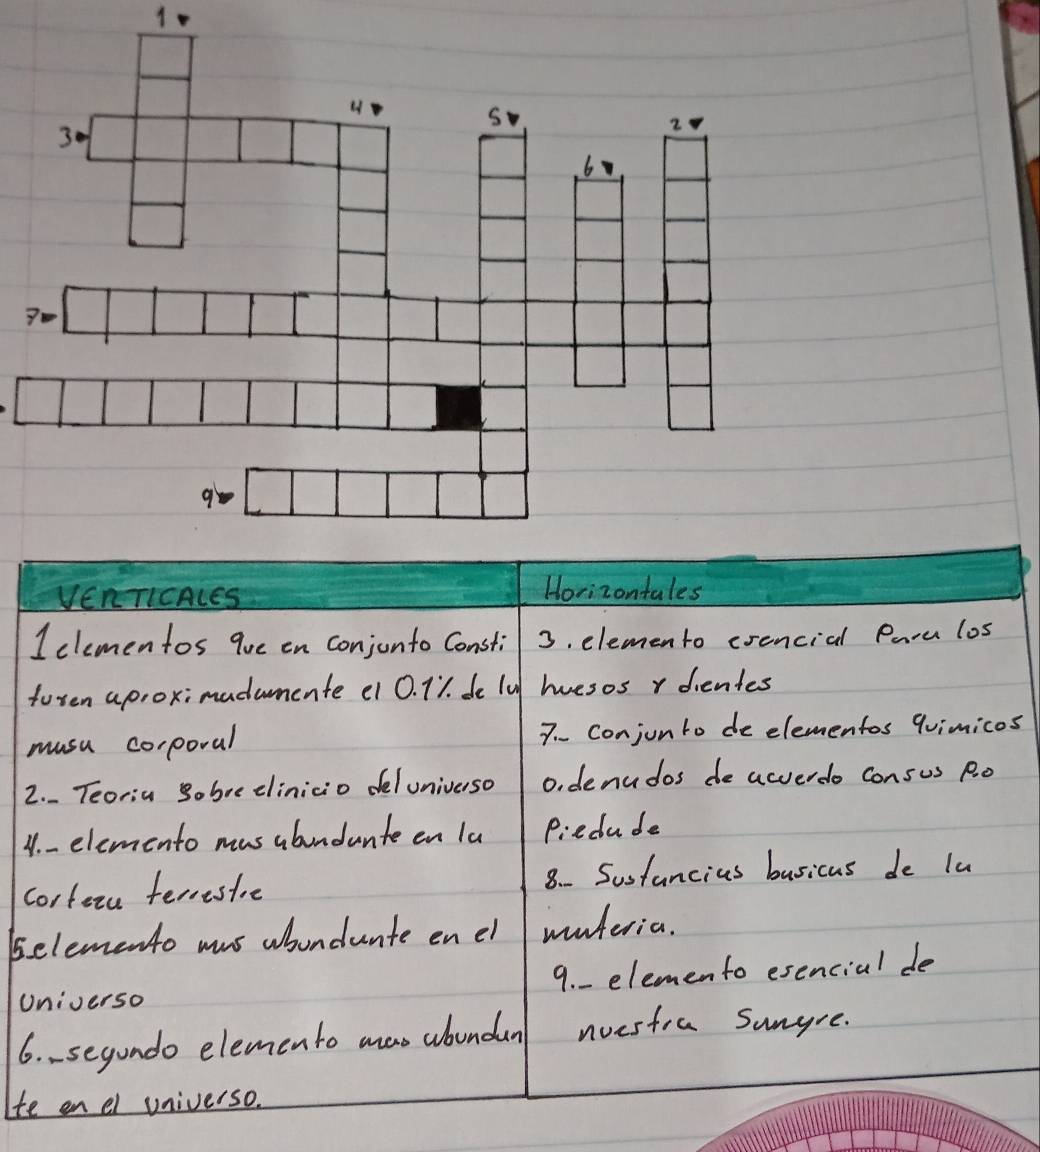 1
4
5
2
3
6
7
9
VERTICALES
1 elementos que en conjunto Consti
tuyen aproximadamente el 0.1% de la
masa corporal
2.- Teoria sobre elinicio del universo
4.- elemento mas abundante en la
corteza terrestre
5.elemento mas abundante en el
universo
6.-segundo elemento mas abundan
te en el universo.
Horizontales
3. elemento esencial Para los
huesos y dientes
7.- conjunto de elementos quimicos
o.denados de acuerdo consus Pro
Piedade
8.- Sustancias basicas de la
materia.
9.- elemento esencial de
nuestra Sangre.